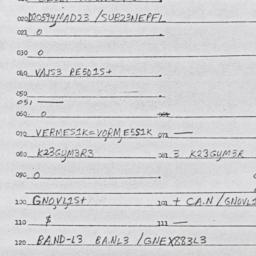 020 D0594MAD23 /SUB23NEPFL
021 0
030 0
040 VAJS3 RE5015+
050
051 —
060. 0
070 VERMES1K=VORMESS1K 071 —
080. K23GYM3R3 081 Ξ K23GYM3R
090. 0
100 GNOVL1S+ 101 + CA.N / GNOVL1
110 $ 111 —
120 BAND-L3 BANL3 /GNEX883L3